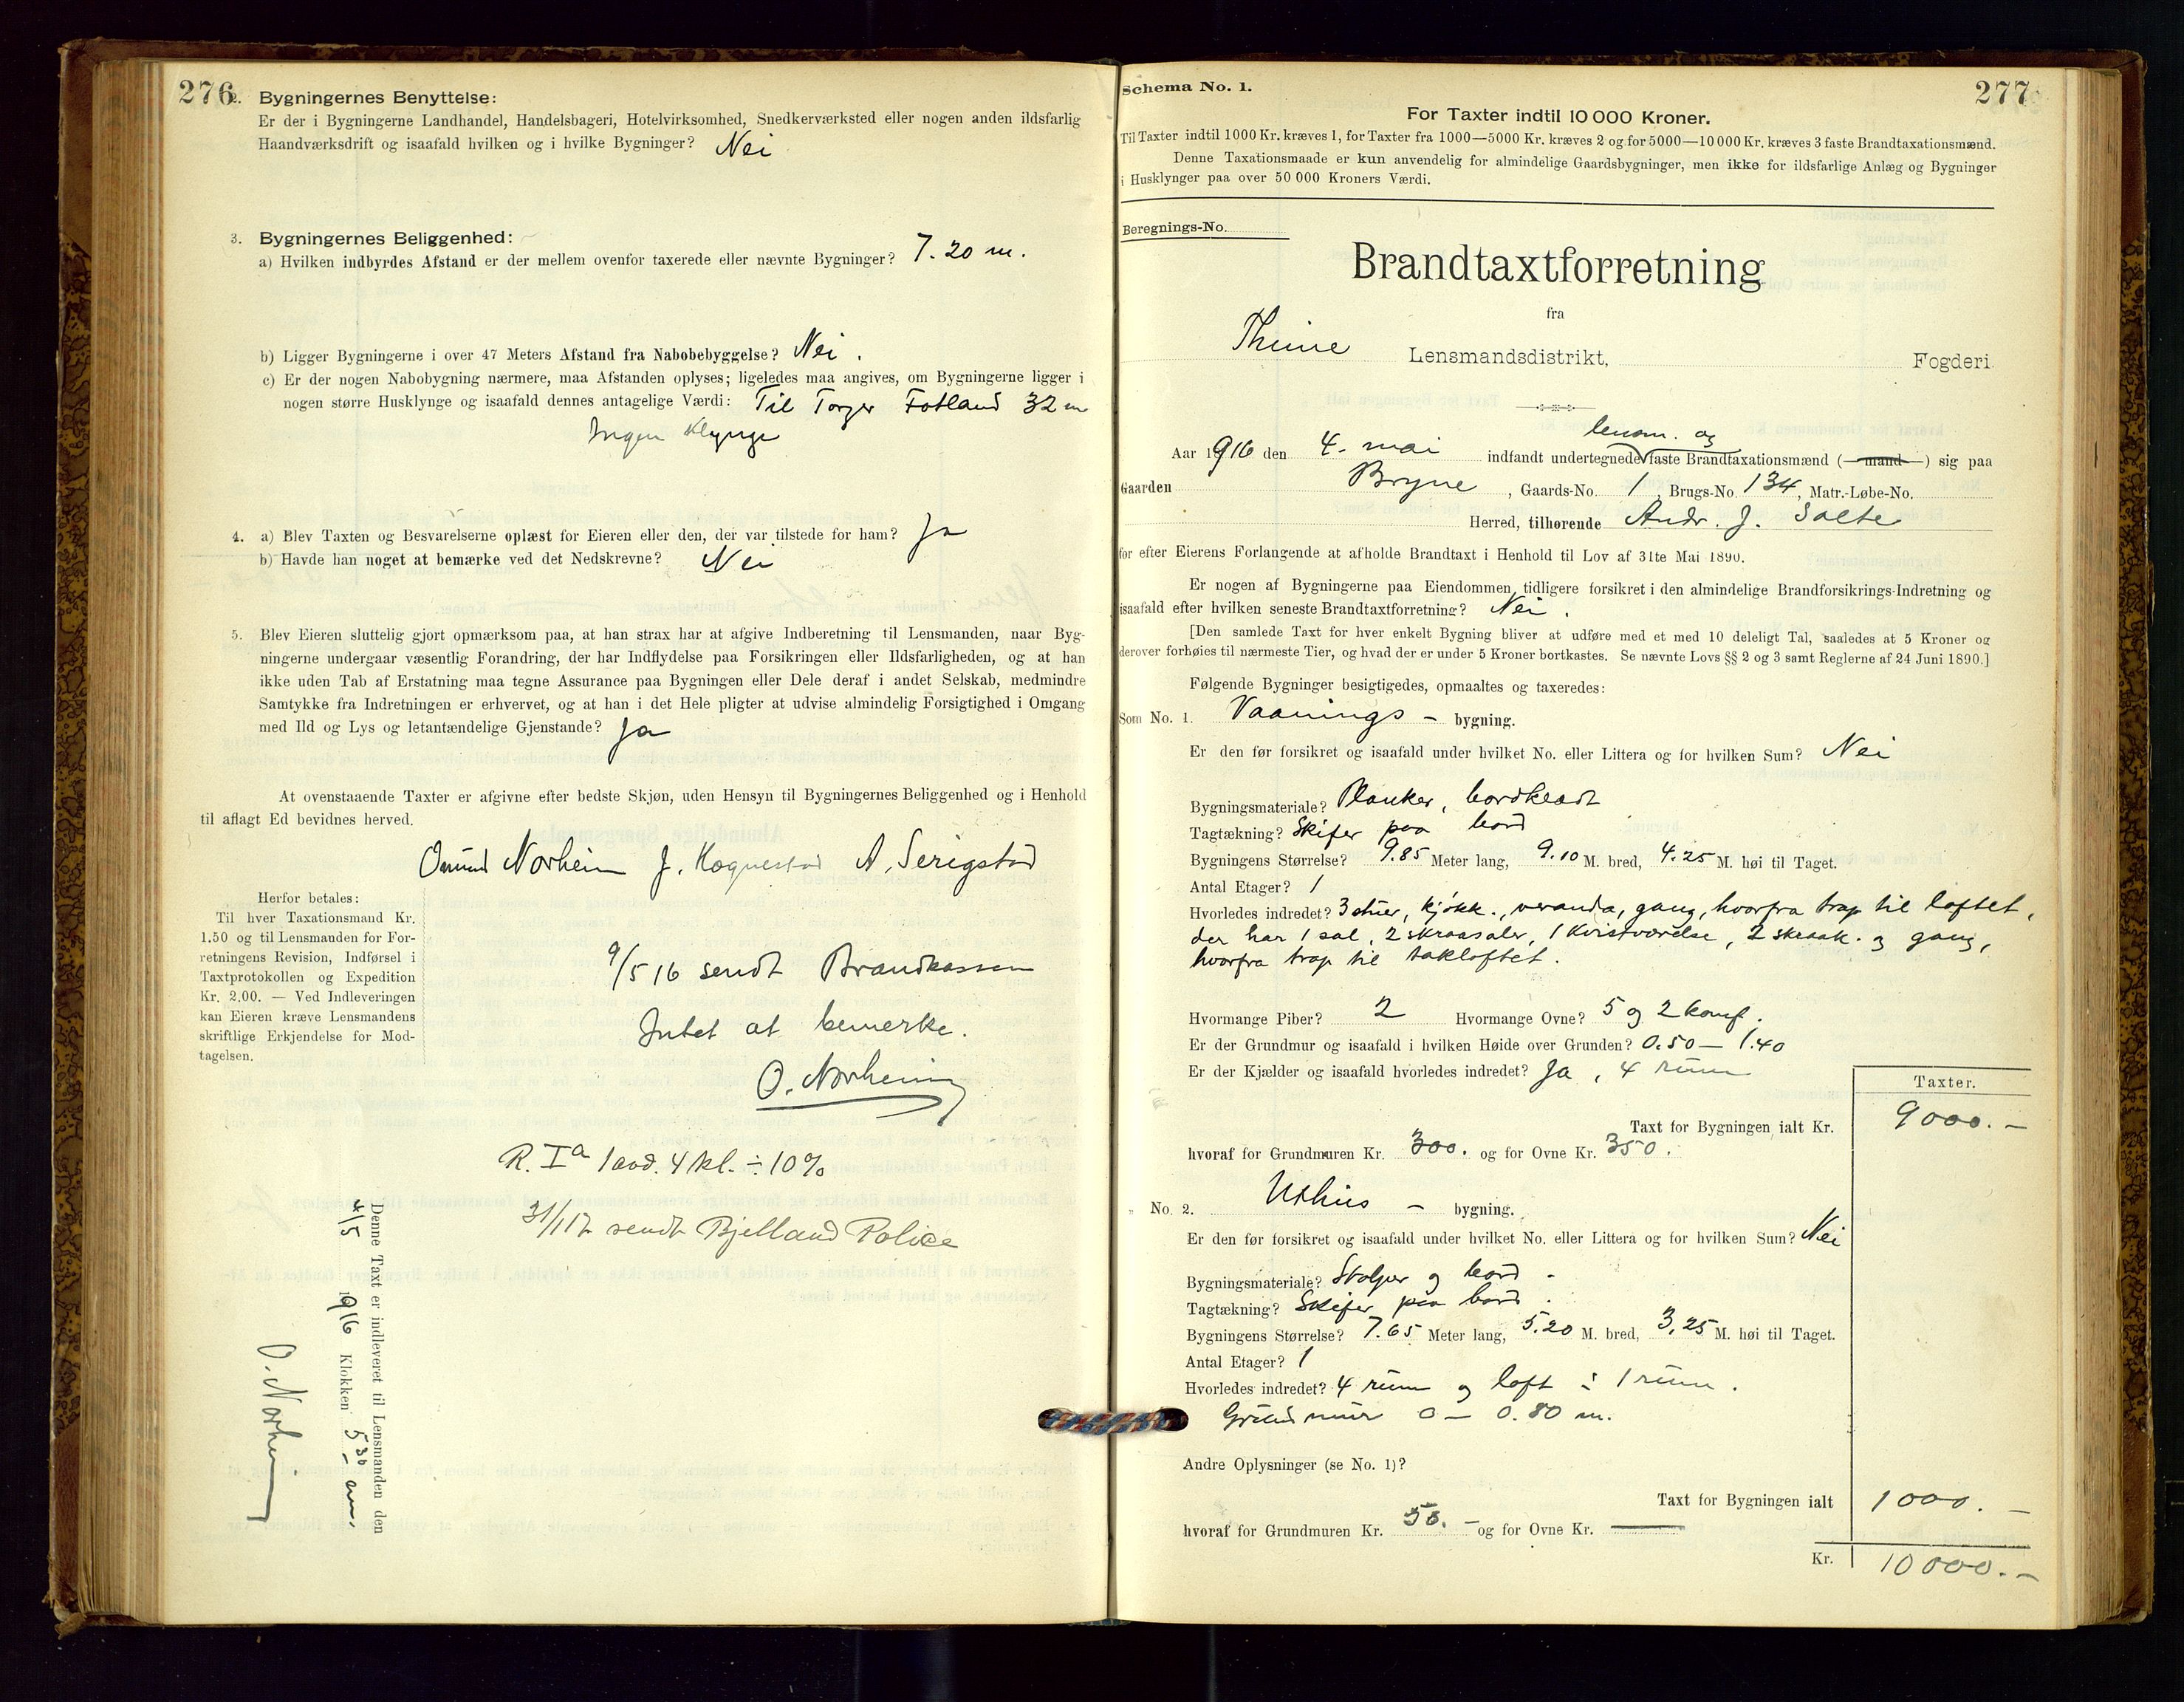 276
2. Bygningernes Benyttelse:
Er der i Bygningerne Landhandel, Handelsbageri, Hotelvirksomhed, Snedkerværksted eller nogen anden ildsfarlig
Haandværksdrift og isaafald hvilken og i hvilke Bygninger? Nei
3. Bygningernes Beliggenhed:
a) Hvilken indbyrdes Afstand er der mellem ovenfor taxerede eller nævnte Bygninger? 7.20 m.
b) Ligger Bygningerne i over 47 Meters Afstand fra Nabobebyggelse? Nei.
c) Er der nogen Nabobygning nærmere, maa Afstanden oplyses; ligeledes maa angives, om Bygningerne ligger i
nogen større Husklynge og isaafald dennes antagelige Værdi: Til Torger Fotland 32 m
Ingen Klynge
4. a) Blev Taxten og Besvarelserne oplæst for Eieren eller den, der var tilstede for ham? Ja
b) Havde han noget at bemærke ved det Nedskrevne? Nei
5. Blev Eieren sluttelig gjort opmærksom paa, at han strax har at afgive Indberetning til Lensmanden, naar Byg-
ningerne undergaar væsentlig Forandring, der har Indflydelse paa Forsikringen eller Ildsfarligheden, og at han
ikke uden Tab af Erstatning maa tegne Assurance paa Bygningen eller Dele deraf i andet Selskab, medmindre
Samtykke fra Indretningen er erhvervet, og at han i det Hele pligter at udvise almindelig Forsigtighed i Omgang
med Ild og Lys og letantændelige Gjenstande? Ja
At ovenstaaende Taxter er afgivne efter bedste Skjøn, uden Hensyn til Bygningernes Beliggenhed og i Henhold
til aflagt Ed bevidnes herved.
Omund Norheim J. Hognestad A. Serigstad
Herfor betales:
Til hver Taxationsmand Kr.
1.50 og til Lensmanden for For-
retningens Revision, Indførsel i
Taxtprotokollen og Expedition
Kr. 2.00. — Ved Indleveringen
kan Eieren kræve Lensmandens
skriftlige Erkjendelse for Mod-
tagelsen.
9/5 16 sendt Brandkassen
Intet at bemerke.
O. Norheim
R. Ia 1 avd. 4 kl. ÷ 10%
31/1 17 sendt Bjelland Police
Denne Taxt er indleveret til Lensmanden den
4/5 1916 Klokken 5 30 em.
O. Norheim
277
Schema No. 1.
For Taxter indtil 10 000 Kroner.
Til Taxter indtil 1000 Kr. kræves 1, for Taxter fra 1000—5000 Kr. kræves 2 og for 5000—10 000 Kr. kræves 3 faste Brandtaxationsmænd.
Denne Taxationsmaade er kun anvendelig for almindelige Gaardsbygninger, men ikke for ildsfarlige Anlæg og Bygninger
i Husklynger paa over 50 000 Kroners Værdi.
Beregnings-No.
Brandtaxtforretning
fra
Thime Lensmandsdistrikt, Fogderi
lensm. og
Aar 1916 den 4. mai indfandt undertegnede faste Brandtaxationsmænd (mand) sig paa
Gaarden Bryne, Gaards-No. 1, Brugs-No. 134, Matr.-Løbe-No.
Herred, tilhørende Andr. J. Salte
for efter Eierens Forlangende at afholde Brandtaxt i Henhold til Lov af 31te Mai 1890.
Er nogen af Bygningerne paa Eiendommen tidligere forsikret i den almindelige Brandforsikrings-Indretning og
isaafald efter hvilken seneste Brandtaxtforretning? Nei.
[Den samlede Taxt for hver enkelt Bygning bliver at udføre med et med 10 deleligt Tal, saaledes at 5 Kroner og
derover forhøies til nærmeste Tier, og hvad der er under 5 Kroner bortkastes. Se nævnte Lovs §§ 2 og 3 samt Reglerne af 24 Juni 1890.]
Følgende Bygninger besigtigedes, opmaaltes og taxeredes:
Som No. 1. Vaanings - bygning.
Er den før forsikret og isaafald under hvilket No. eller Littera og for hvilken Sum? Nei
Bygningsmateriale? Planker, bordklædt
Tagtækning? Skifer paa bord
Bygningens Størrelse? 9.85 Meter lang, 9.10 M. bred, 4.25 M. høi til Taget.
Antal Etager? 1
Hvorledes indredet? 3 stuer, kjøkk., veranda, gang, hvorfra trap til loftet,
der har 1 sal, 2 skraasaler, 1 kvistværelse, 2 skraak. og gang,
hvorfra trap til takloftet.
Hvormange Piber? 2 Hvormange Ovne? 5 og 2 komf.
Er der Grundmur og isaafald i hvilken Høide over Grunden? 0.50 — 1.40
Er der Kjælder og isaafald hvorledes indredet? Ja, 4 rum
Taxter.
Taxt for Bygningen ialt Kr. 9000.-
hvoraf for Grundmuren Kr. 300. og for Ovne Kr. 350.
No. 2. Uthus - bygning.
Er den før forsikret og isaafald under hvilket No. eller Littera og for hvilken Sum? Nei
Bygningsmateriale? Stolper og bord.
Tagtækning? Skifer paa bord.
Bygningens Størrelse? 7.65 Meter lang, 5.20 M. bred, 3.25 M. høi til Taget.
Antal Etager? 1
Hvorledes indredet? 4 rum og loft i 1 rum.
Grundmur 0 — 0.80 m.
Andre Oplysninger (se No. 1)?
Taxt for Bygningen ialt 1000.-
hvoraf for Grundmuren Kr. 50.- og for Ovne Kr. —
Kr. 10000.-